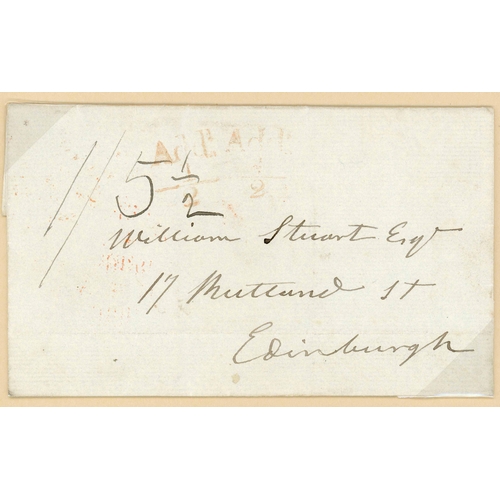 1/5½
William Stuart Esqr
17 Rutland St
Edinburgh